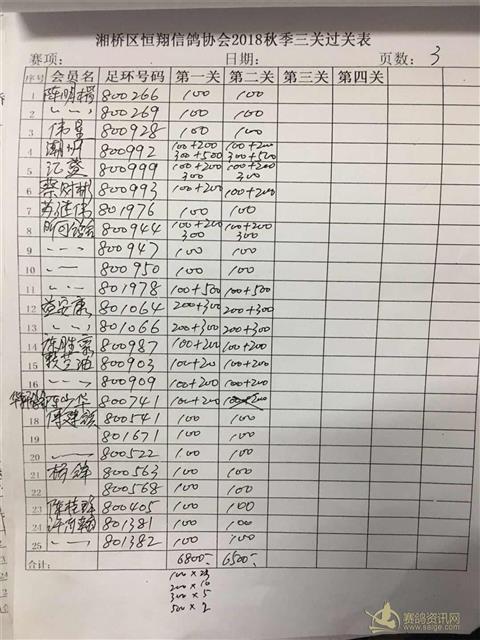 湘桥区恒翔信鸽协会2018秋季三关过关表
赛项: 日期: 页数: 3
序号 会员名 足环号码 第一关 第二关 第三关 第四关
1 陈明楷 800266 100 100
2 〃 800269 100 100
3 伟星 800928 100 100
4 潮州 800992 100+200 300+500 100+200 300+500
5 800999 100+200 300 100+200 300
6 蔡财彬 800993 100+200 100+200
7 苏继伟 801976 100 100
8 800944 100+200 300 100+200 300
9 〃 800947 100 100
10 〃 800950 100 100
11 〃 801978 100+500 100+500
12 黄安康 801064 200+300 200+300
13 〃 801066 200+300 200+300
14 陈胜豪 800987 100+200 100+200
15 800903 100+200 100+200
16 〃 800909 100+200 100+200
陈山华 800741 100+200 100+200
18 800541 100 100
19 801671 100 100
20 〃 800522 100 100
21 杨锋 800563 100 100
22 800568 100 100
23 800405 100 100
24 801381 100 100
25 〃 801382 100 100
合计: 6800- 6500-
100 × 23
200 × 10
300 × 5
500 × 2
赛鸽资讯网
www.saige.com